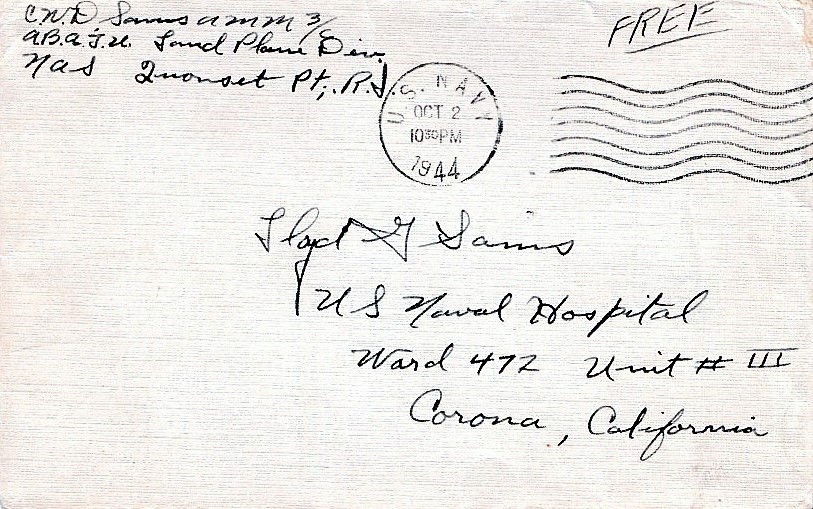 C.W.D Sams AMM 3/
A.B.A.T.U. Land Plane Div.
NAS Quonset Pt., R.I.
FREE
U.S. NAVY
OCT 2
10 30 PM
1944
Lloyd G Sams
US Naval Hospital
Ward 472 Unit # III
Corona, California